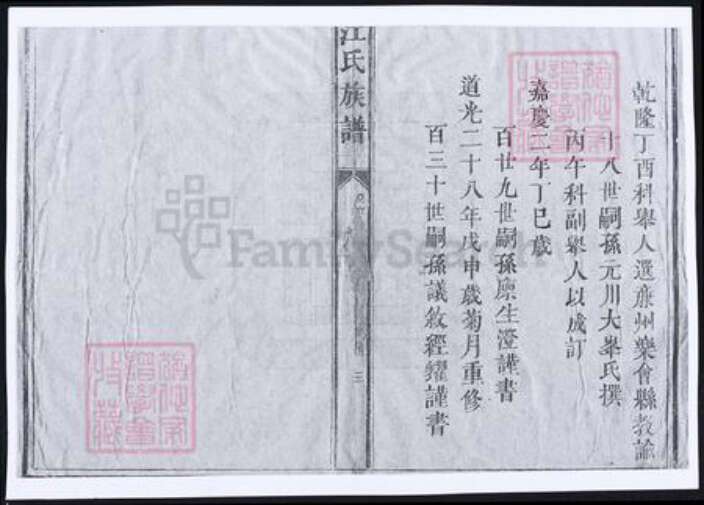 乾隆丁酉科舉人選亷州樂會縣教諭
十八世嗣孫元川大峯氏撰
丙午科副舉人以成訂
嘉慶二年丁巳歲
百廿九世嗣孫廪生澄謹書
道光二十八年戊申歲菊月重修
百三十世嗣孫議敘經耀謹書
江氏族譜
三
FamilySearch